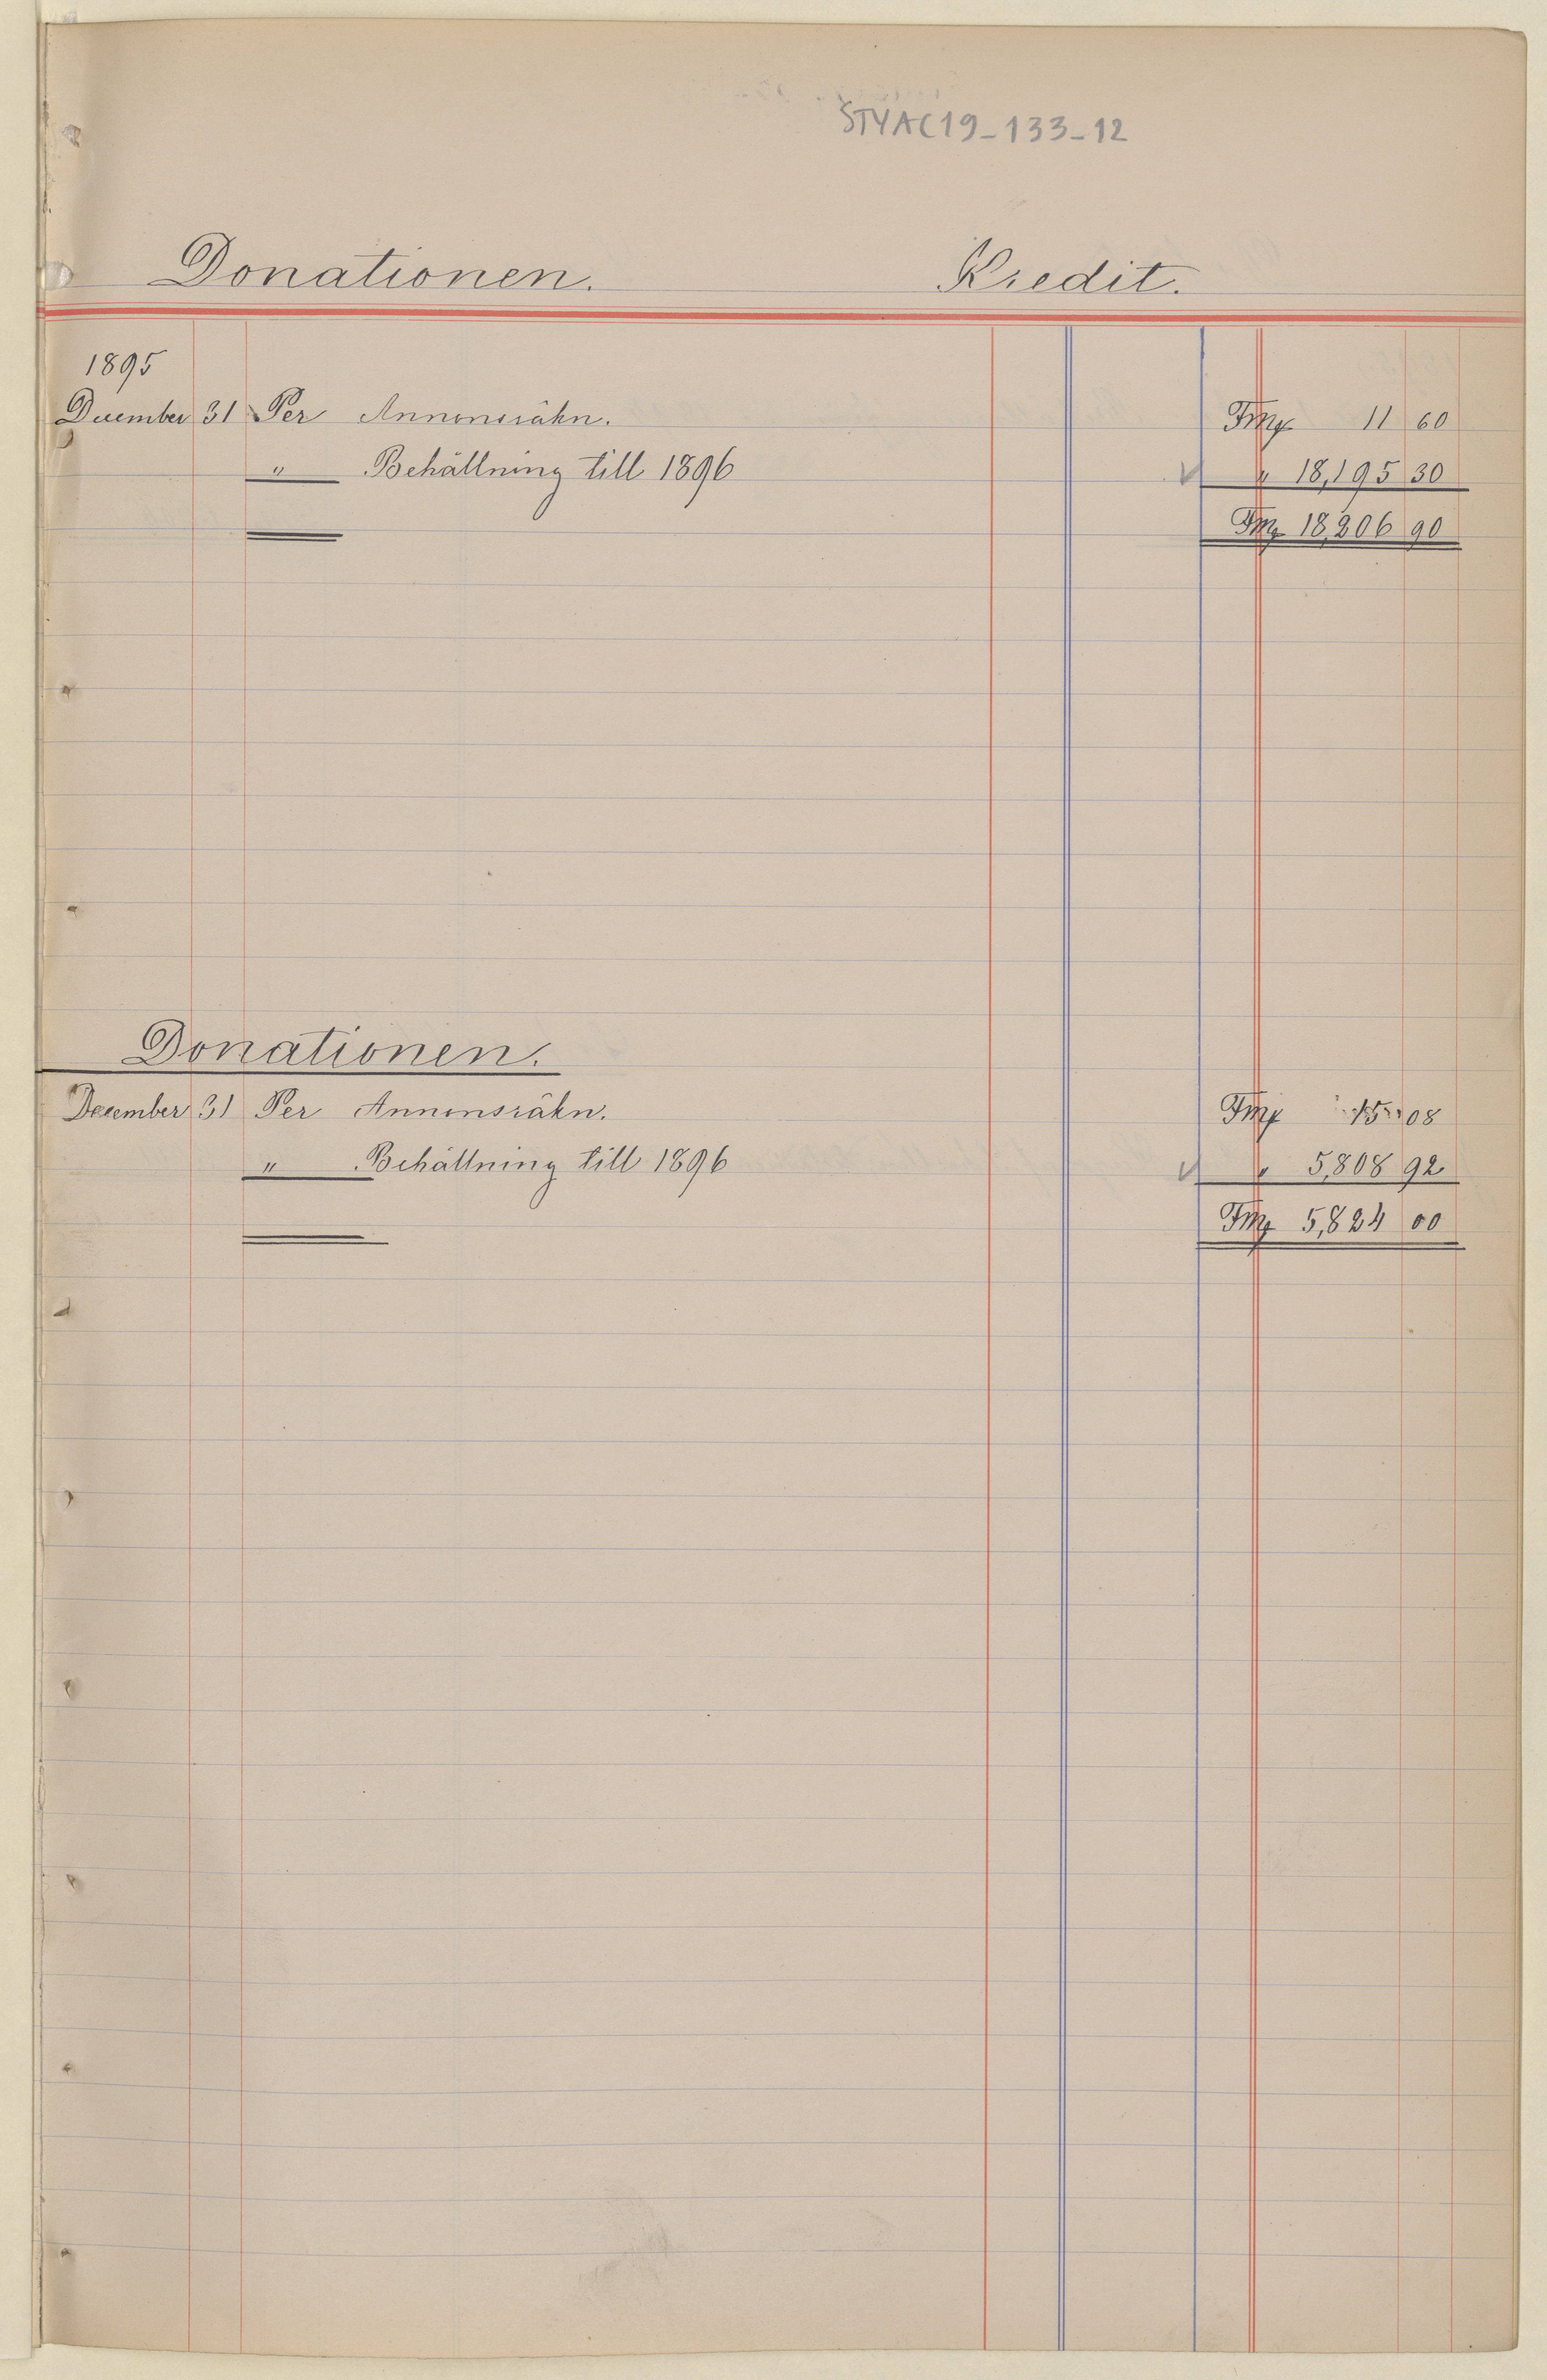 STYAC19_133_12
Donationen. Kredit.
1895
December 31 Per Annonsräkn. Fmk 11 60
" Behållning till 1896 √ " 18,195 30
Fmk 18,206 90
Donationen.
December 31 Per Annonsräkn. Fmk 15 08
" Behållning till 1896 √ " 5,808 92
Fmk 5,824 00